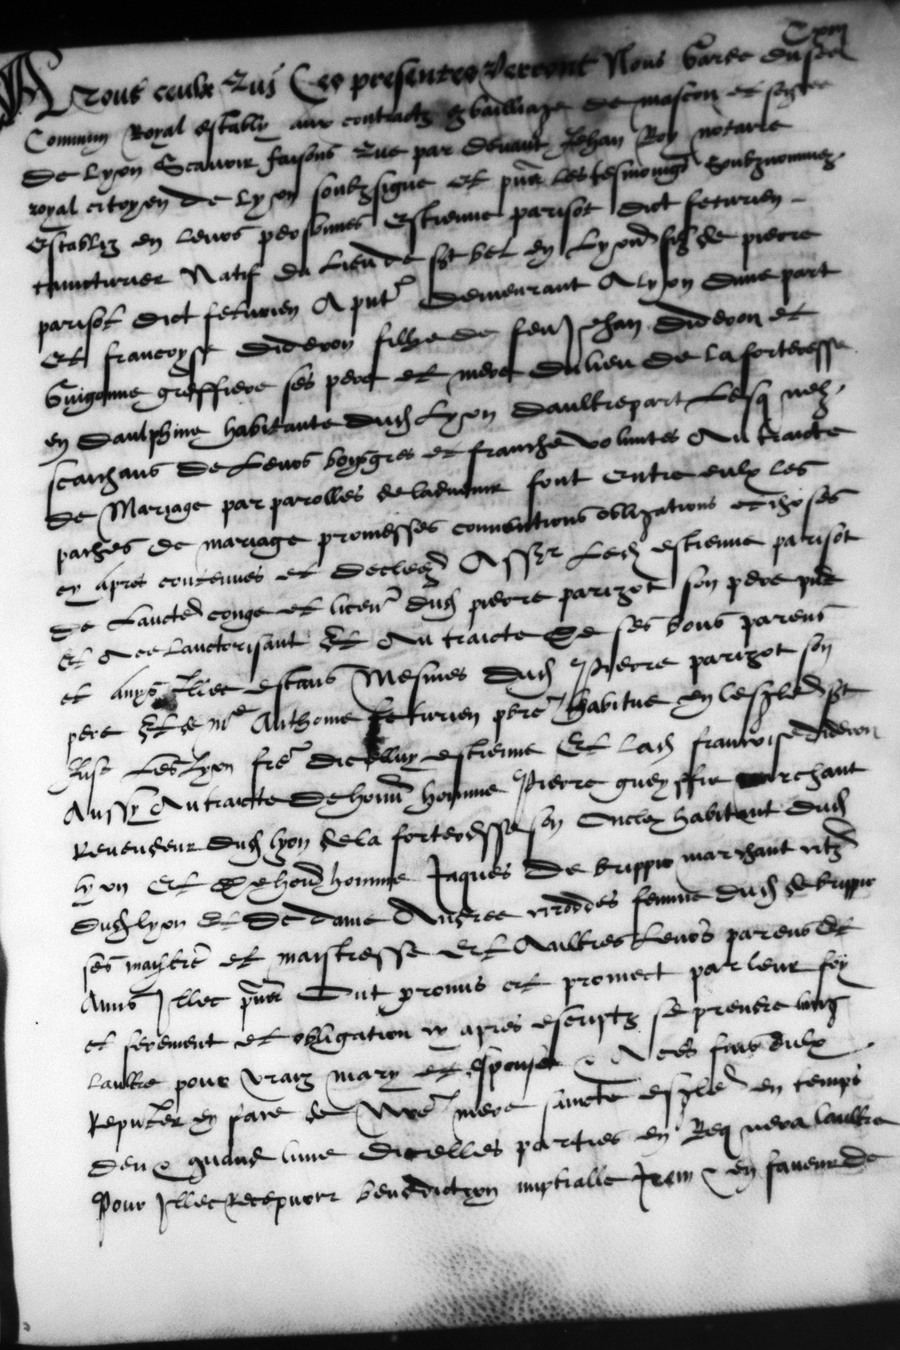 A tous ceulx Qui Ces presentes Verront Nous Garde du seel
Commun Royal estably aux contractz et bailliage de mascon et
de Lyon Scavoir faisons Que par devant Jehan Roy notaire
royal citoyen de Lyon soubzsigne et les tesmoings soubznommez
establiz en leurs personnes Estienne parisot dict feturien
natif du Lieu de st bel en Lyonn filz de pierre
parisot dict feturien A demeurant A lyon dune part
Et francoyse dideron fillie de feu Jehan dideron et
Guigonne greffiere ses pere et mere du lieu de la forteresse
en daulphine habitante dud Lyon daultrepart Lesquelz
scaichans de Leurs bons gres et franche voluntes Au traicte
de Mariage par parolles de ladvenir font entre eulx les
paches de mariage promesses conventions obligations et choses
cy apres contenues et Asscr Led estienne parisot
de Laucte conge et licence dud pierre parizot son pere
Et A ce Lauctorisant Et Au traicte de ses bons parens
et amys illec estans Mesmes dud Pierre parizot son
pere Et de me Anthoine feturien habitue en Lesglise st
Just Les Lyon frere dicelluy estienne Et Lad francoise dideron
Aussy Au traicte de honn homme Pierre gueyffie marchant
Revendeur dud lyon de la forteresse son Oncle habitant dud
lyon Et de hon homme Jaques de brippio marchant
dud lyon et de dame Andree femme dud de brippio
ses maistre et maistresse Et Aultres Leurs parens Et
Amis Illec Ont promis et promect par leur foy
et serement et obligation cy apres escriptz se prendre lung
laultre pour vraiz mary et Espouse A ces fins deulx
en face de Nre mere saincte esglise en temps
deu quand lune dicelles parties en Requera laultre
Pour Illec Recepvoir benediction nuptialle Item en faveur de